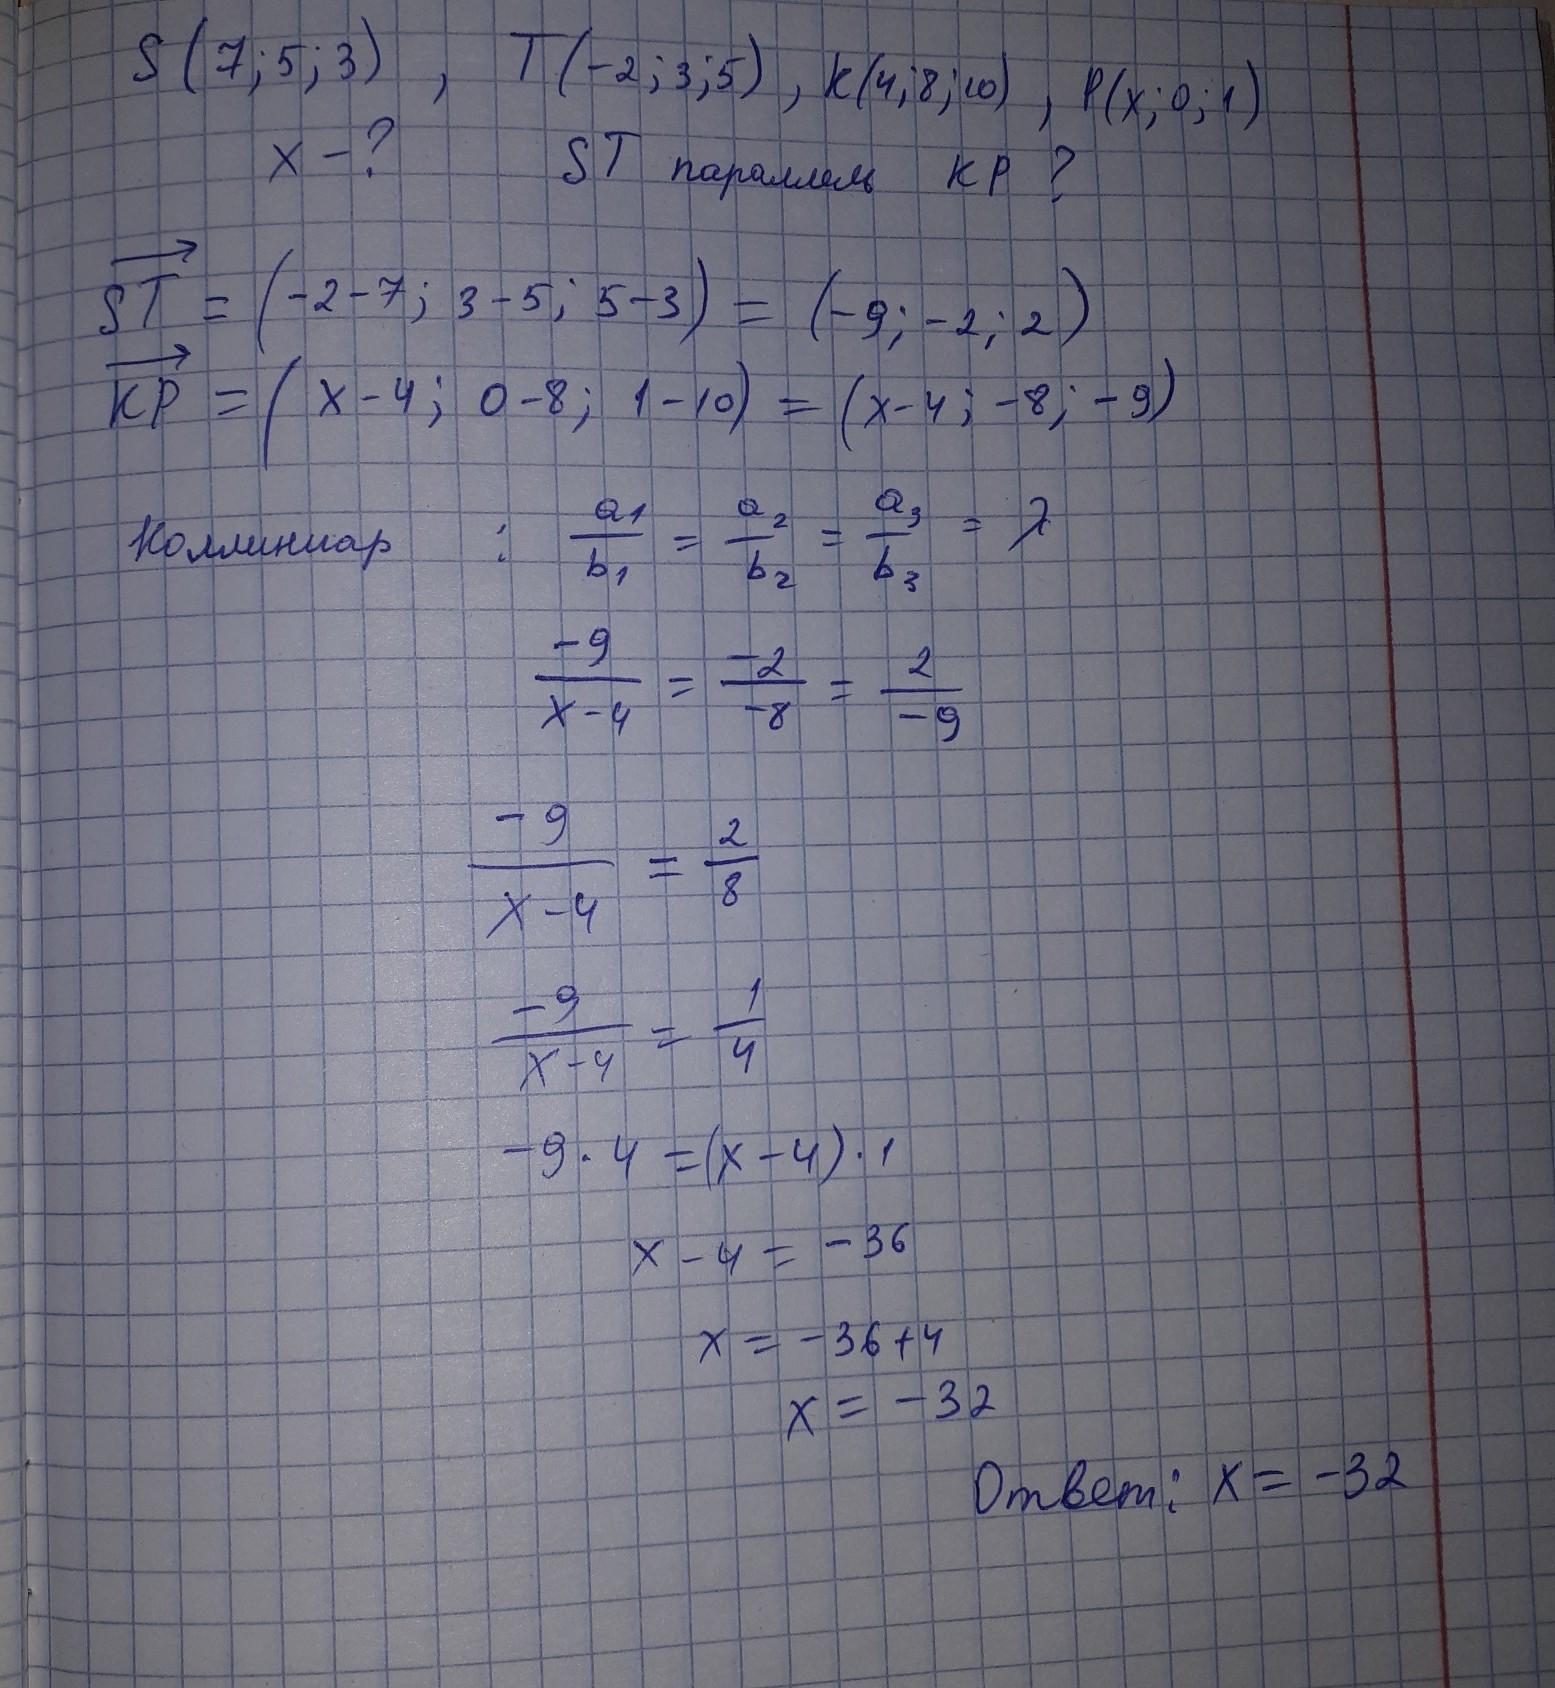 S(7;5;3), T(-2;3;5), K(4;8;10), P(x;0;1)
x-? ST параллель KP ?
ST = (-2-7; 3-5; 5-3) = (-9; -2; 2)
KP = (x-4; 0-8; 1-10) = (x-4; -8; -9)
Коллиниар : a1/b1 = a2/b2 = a3/b3 = λ
-9/x-4 = -2/-8 = 2/-9
-9/x-4 = 2/8
-9/x-4 = 1/4
-9·4 = (x-4)·1
x-4 = -36
x = -36+4
x = -32
Ответ: x = -32